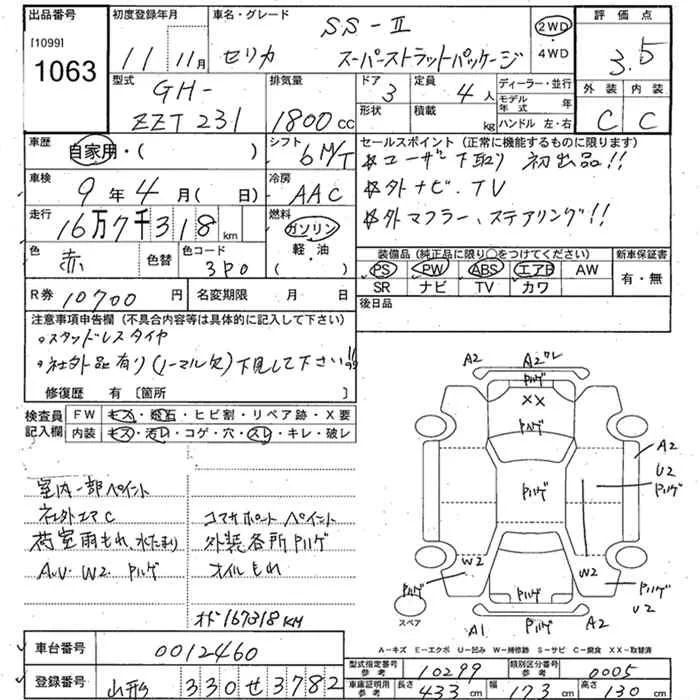 出品番号
[1099]
1063
初度登録年月
11年 11月
車名・グレード
セリカ
SS-Ⅱ
スーパーストラットパッケージ
2WD
4WD
評価点
3.5
外装 内装
C C
型式
GH-
ZZT231
排気量
1800cc
ドア
3
定員
4人
形状
積載
kg
ディーラー・並行
モデル年式 年
ハンドル 左・右
車歴
自家用・( )
シフト
6M/T
車検
9年 4月( 日)
冷房
AAC
走行
16万7千318km
燃料
ガソリン
軽・油
( )
色
赤
色替
色コード
3P0
R券 10700円
名変期限 月 日
セールスポイント(正常に機能するものに限ります)
*ユーザー下取り 初出品!!
*外ナビ、TV
*外マフラー、ステアリング!!
装備品(純正品に限り○をつけてください)
PS PW ABS エアB AW
SR ナビ TV カワ
新車保証書
有・無
後日品
注意事項申告欄(不具合内容等は具体的に記入して下さい)
。スタッドレスタイヤ
。社外品有り(ノーマル欠)下見して下さい!!
修復歴 有〔箇所 〕
検査員記入欄
FW キズ・飛石・ヒビ割・リペア跡・X要
内装 キズ・汚れ・コゲ・穴・スレ・キレ・破レ
室内一部ペイント
社外エアC
荷室雨もれ、水たまり
A.U.W2 Pハゲ
コマサポートペイント
外装各所Pハゲ
オイルもれ
オド167318KM
A2
A2ワレ
Pハゲ
XX
Pハゲ
A2
U2
Pハゲ
Pハゲ
W2
W2
Pハゲ
Pハゲ
Pハゲ
U2
スペア
A1
A2
A-キズ E-エクボ U-凹み W-補修跡 S-サビ C-腐食 XX-取替済
車台番号
0012460
登録番号
山形 330 せ 3782
型式指定番号 参考
10299
類別区分番号 参考
0005
車庫証明用 参考
長さ 433cm
幅 173cm
高さ 130cm